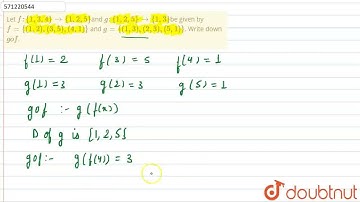 571220544
Let f : {1, 3, 4} → {1, 2, 5} and g : {1, 2, 5} → {1, 3} be given by
f = {(1, 2), (3, 5), (4, 1)} and g = {(1, 3), (2, 3), (5, 1)}. Write down
gof.
f(1) = 2 f(3) = 5 f(4) = 1
g(1) = 3 g(2) = 3 g(5) = 1
gof :- g(f(x))
D of g is {1, 2, 5}
gof :- g(f(4)) = 3
doubtnut